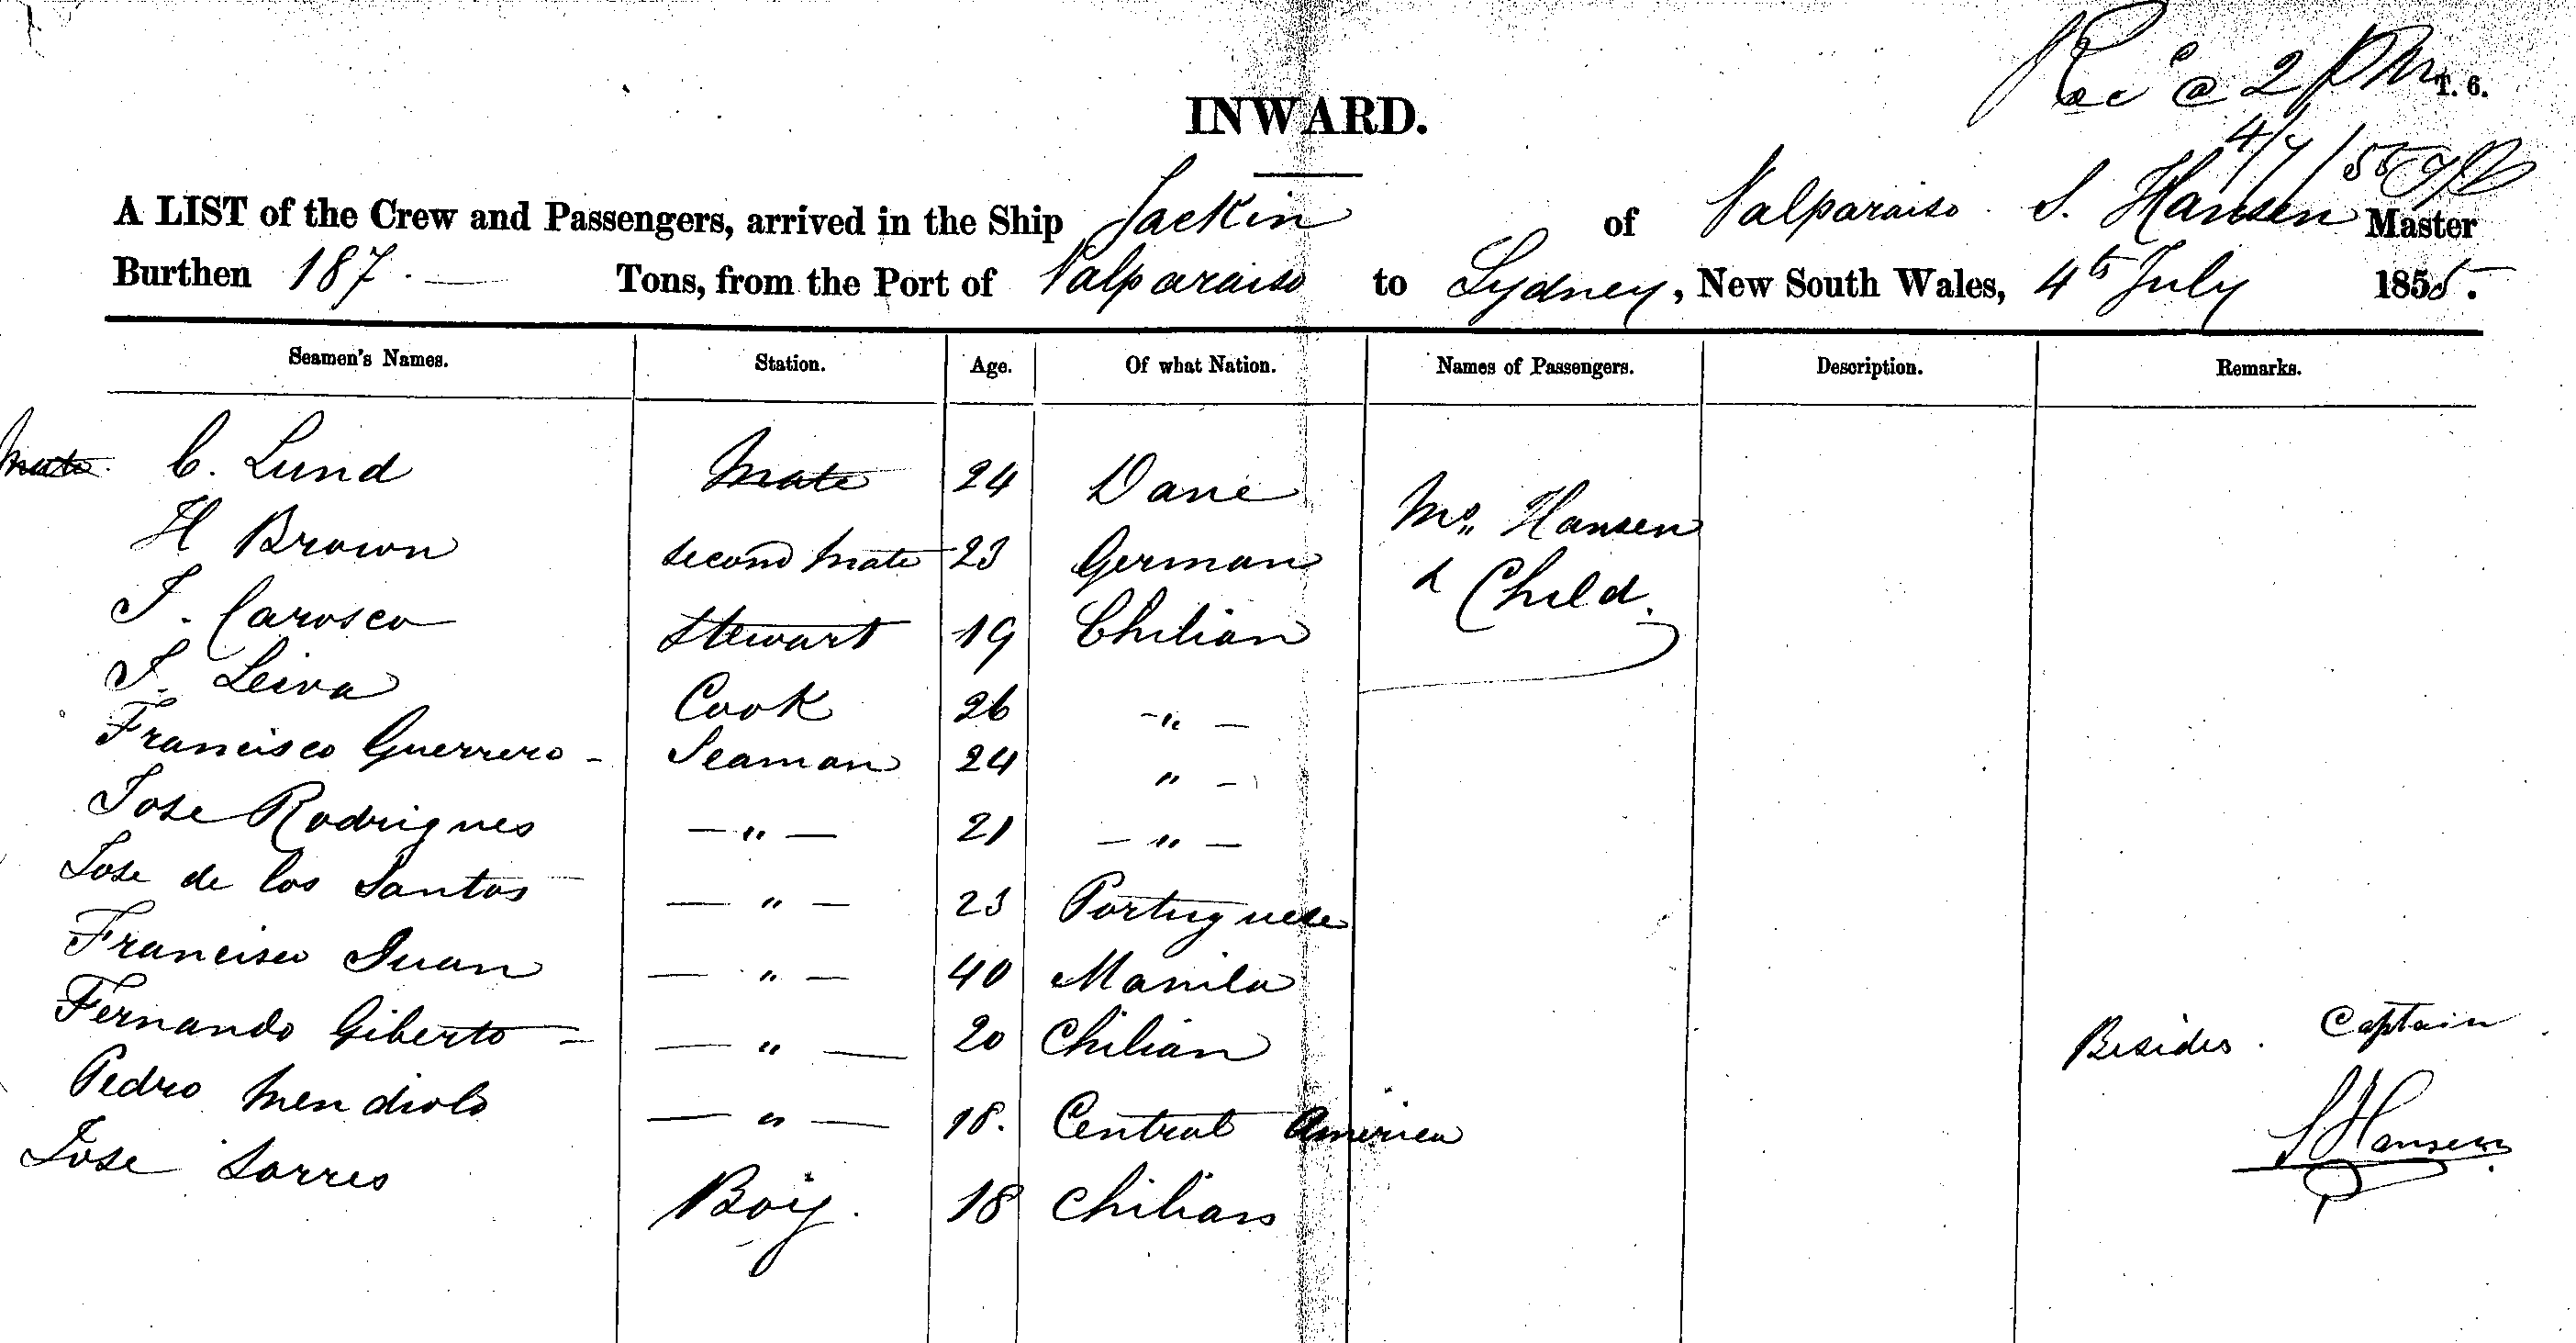 Rec @ 2 PM
T. 6.
4/7/55
INWARD.
A LIST of the Crew and Passengers, arrived in the Ship Jackin of Valparaiso. S. Hansen Master
Burthen 187. — Tons, from the Port of Valparaiso to Sydney, New South Wales, 4th July 1855.
Seamen's Names. Station. Age. Of what Nation. Names of Passengers. Description. Remarks.
Mate. C. Lund Mate 24 Dane
Mrs. Hansen
H Brown second Mate 23 German
& Child.
J. Carosco Stewart 19 Chilian
J. Leiva Cook 26 " —
Francisco Guerrero - Seaman 24 " -
Jose Rodrigues — " — 21 — " —
Jose de los Santos — " — 23 Portuguese
Francisco Juan — " — 40 Manila
Fernando Giberto — " — 20 Chilian
Besides. Captain
Pedro Mendiolo — " — 18. Central America
S Hansen
Jose Torres Boy. 18 Chilian